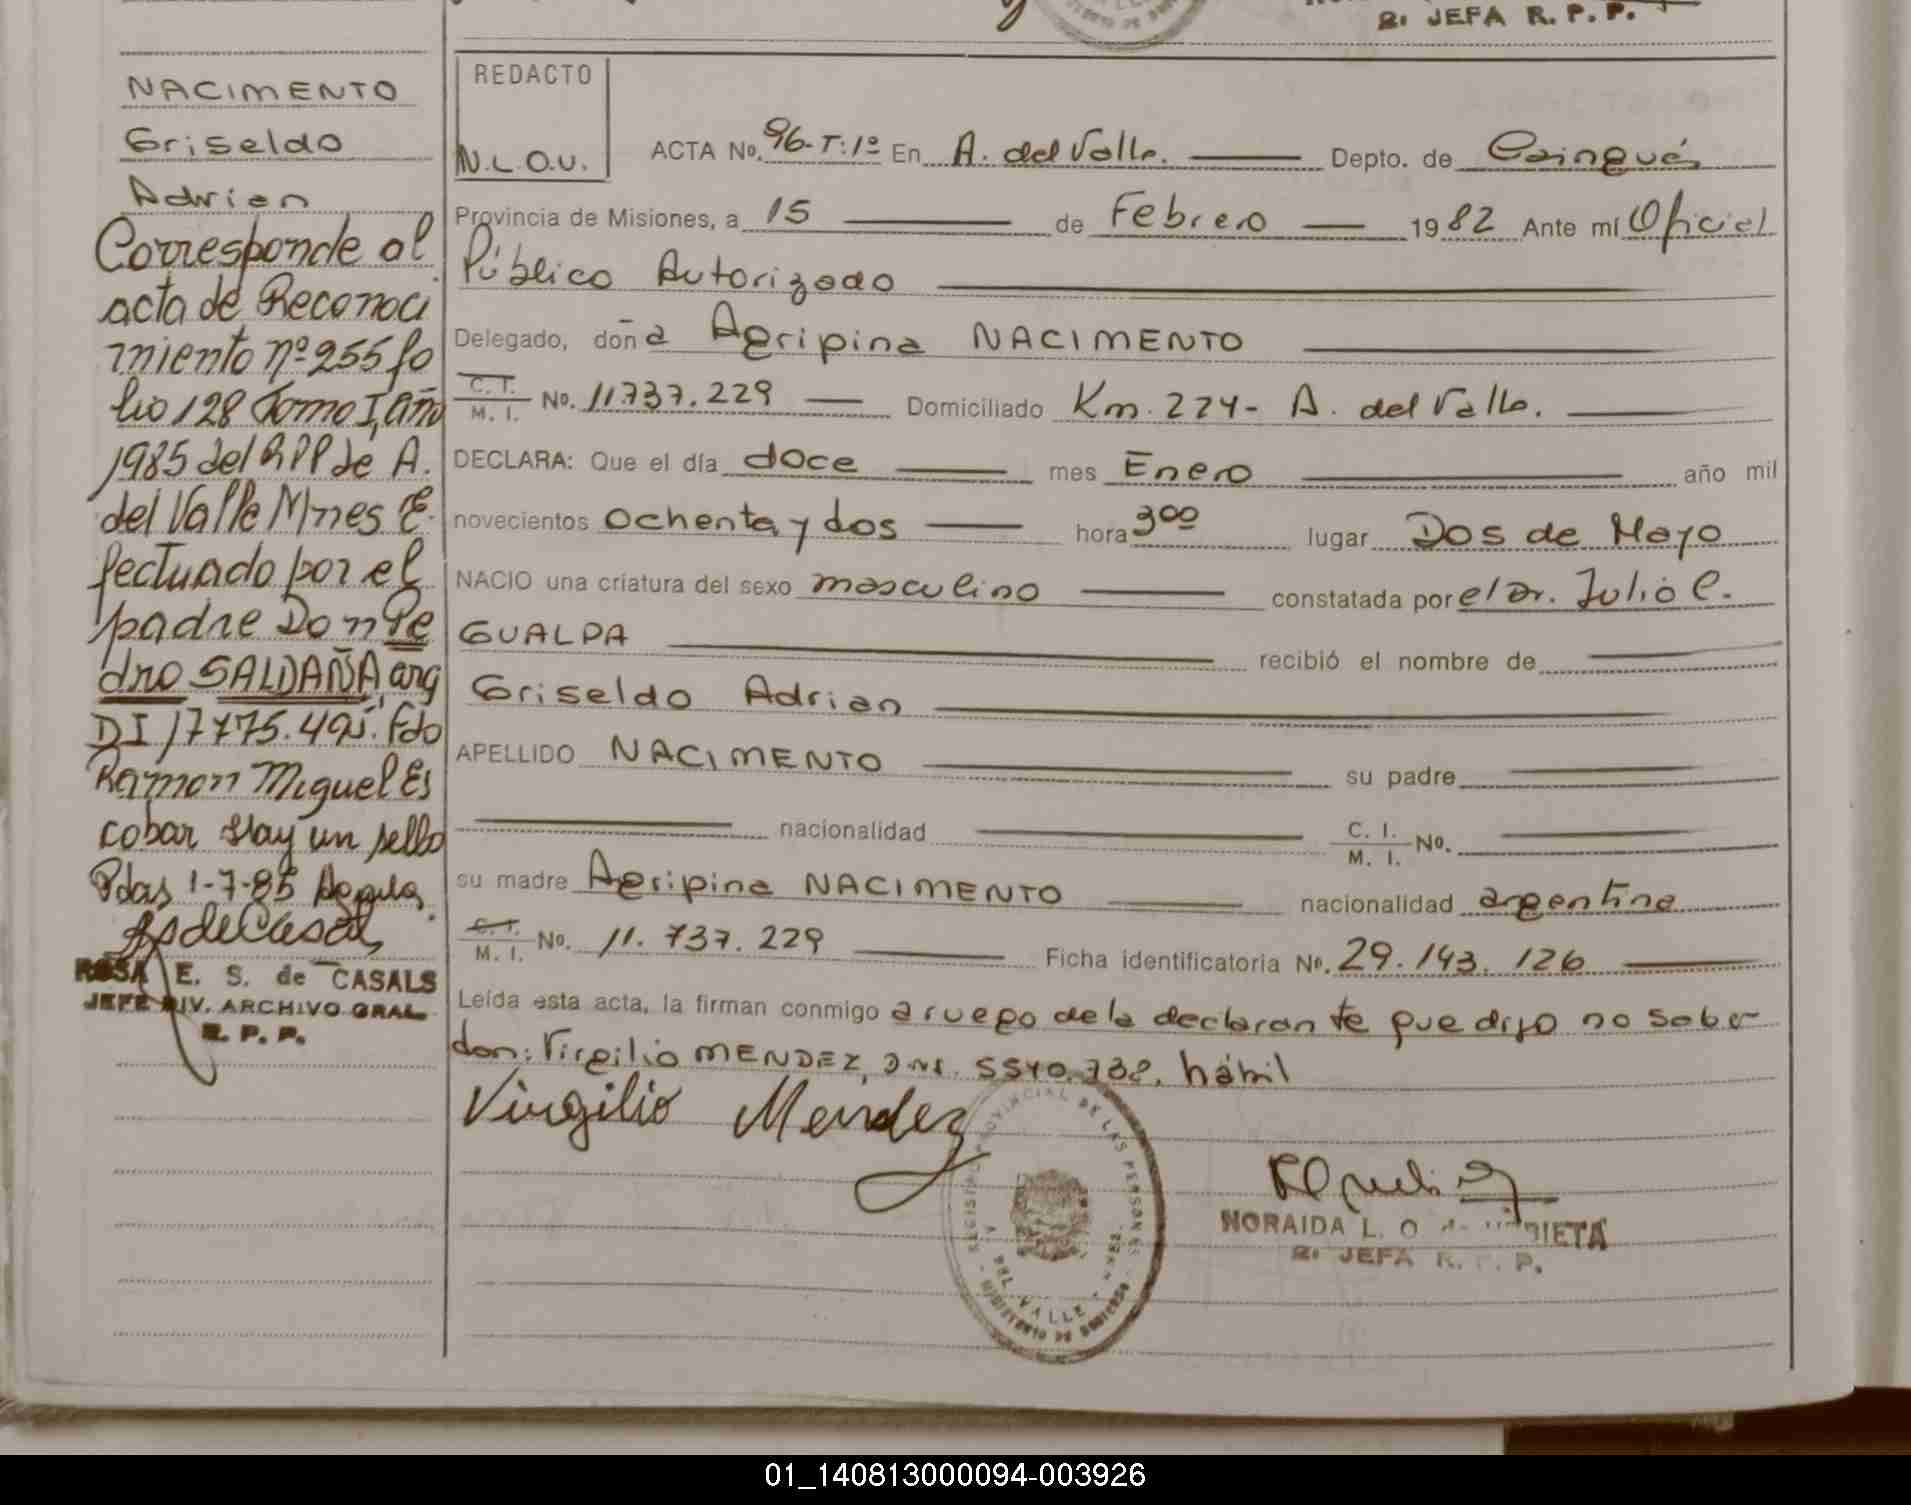 2ª JEFA R. P. P.
NACIMENTO
Griseldo
Adrian
Corresponde al
acta de Reconoci
miento nº 255 fo
lio 128 Tomo I, año
1985 del RPP de A.
del Valle Mnes E
fectuado por el
padre Don Pe
dro SALDAÑA, arg
DI 17775.495. Fdo
Ramon Miguel Es
cobar Hay un sello
Pdas 1-7-85
ROSA E. S. de CASALS
JEFE DIV. ARCHIVO GRAL
R. P. P.
REDACTO
N.L.O.U.
ACTA No. 96-T:1º En A. del Valle. Depto. de Cainguás
Provincia de Misiones, a 15 de Febrero 1982 Ante mí Oficial
Público Autorizado
Delegado, doña Agripina NACIMENTO
C. I. M. I. No. 11737.229 Domiciliado Km. 224- A. del Valle.
DECLARA: Que el día doce mes Enero año mil
novecientos ochenta y dos hora 3ºº lugar Dos de Mayo
NACIO una criatura del sexo masculino constatada por el Dr. Julio C.
GUALPA recibió el nombre de
Griseldo Adrian
APELLIDO NACIMENTO su padre
nacionalidad C. I. M. I. No.
su madre Agripina NACIMENTO nacionalidad argentina
C. I. M. I. No. 11.737.229 Ficha identificatoria No. 29.143.126
Leída esta acta, la firman conmigo a ruego de la declarante que dijo no saber
don: Virgilio MENDEZ, hábil
Virgilio Mendez
REGISTRO PROVINCIAL DE LAS PERSONAS
A. DEL VALLE - MNES.
MINISTERIO DE GOBIERNO
NORAIDA L. O. de URRIETA
2ª JEFA R. P. P.
01_140813000094-003926